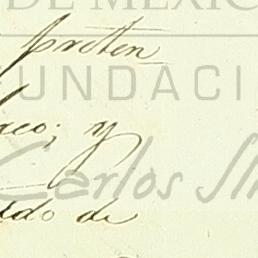 DE MEXIC
preten
FUNDACI
aco; y
Carlos Sli
ado de